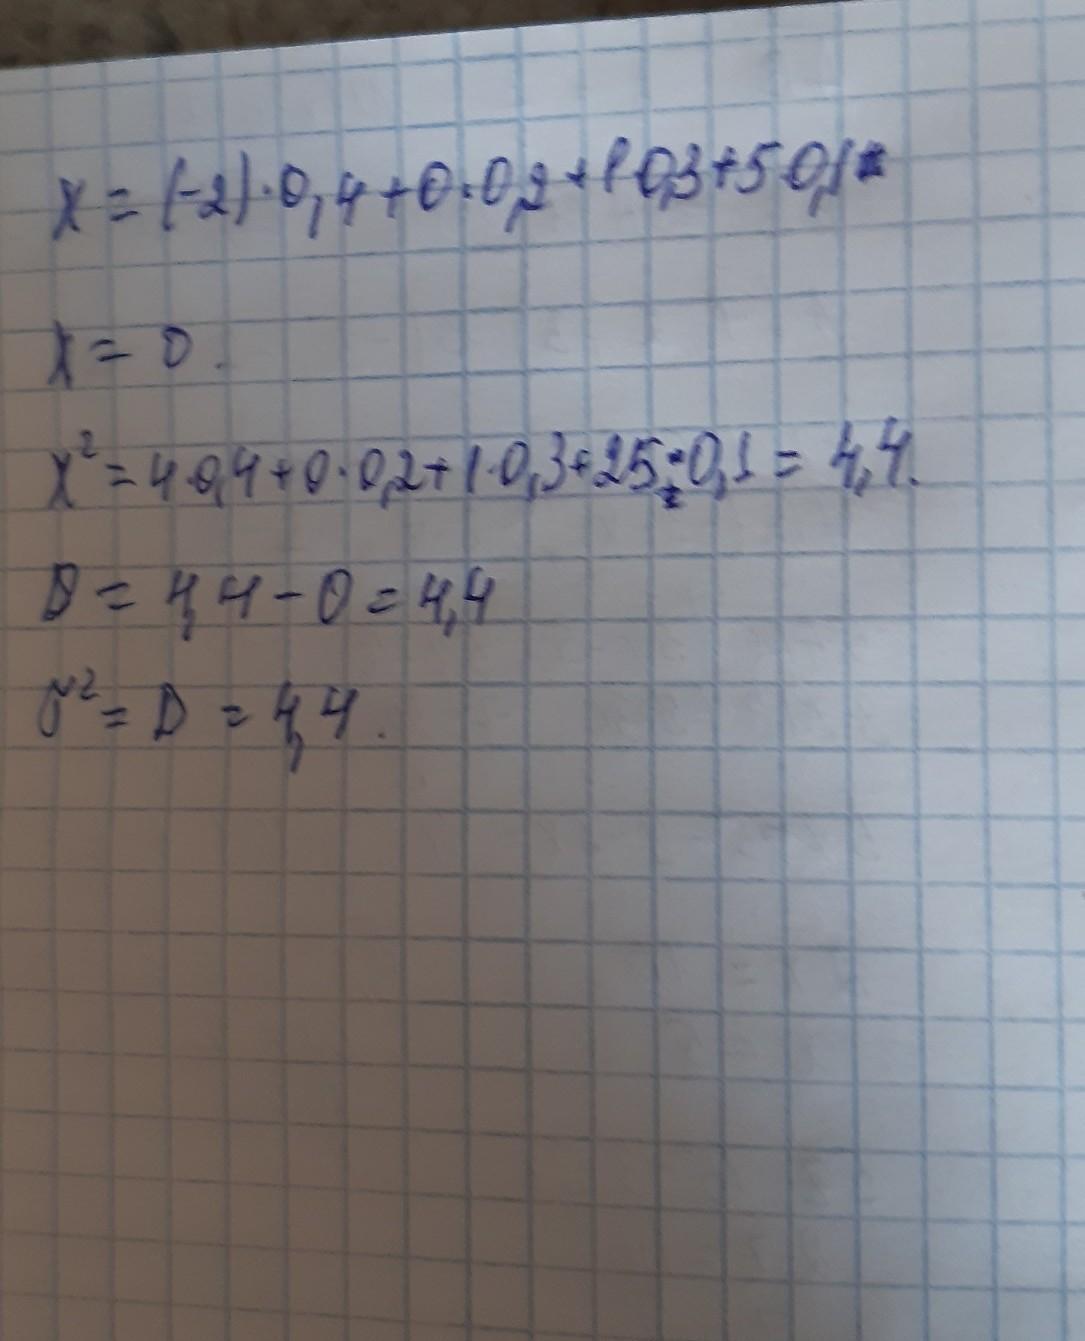 X = (-2)·0,4+0·0,2+1 0,3+5 0,1=
X = 0.
X² = 4·0,4+0·0,2+1·0,3+25·0,1 = 4,4.
D = 4,4-0=4,4
σ² = D = 4,4.